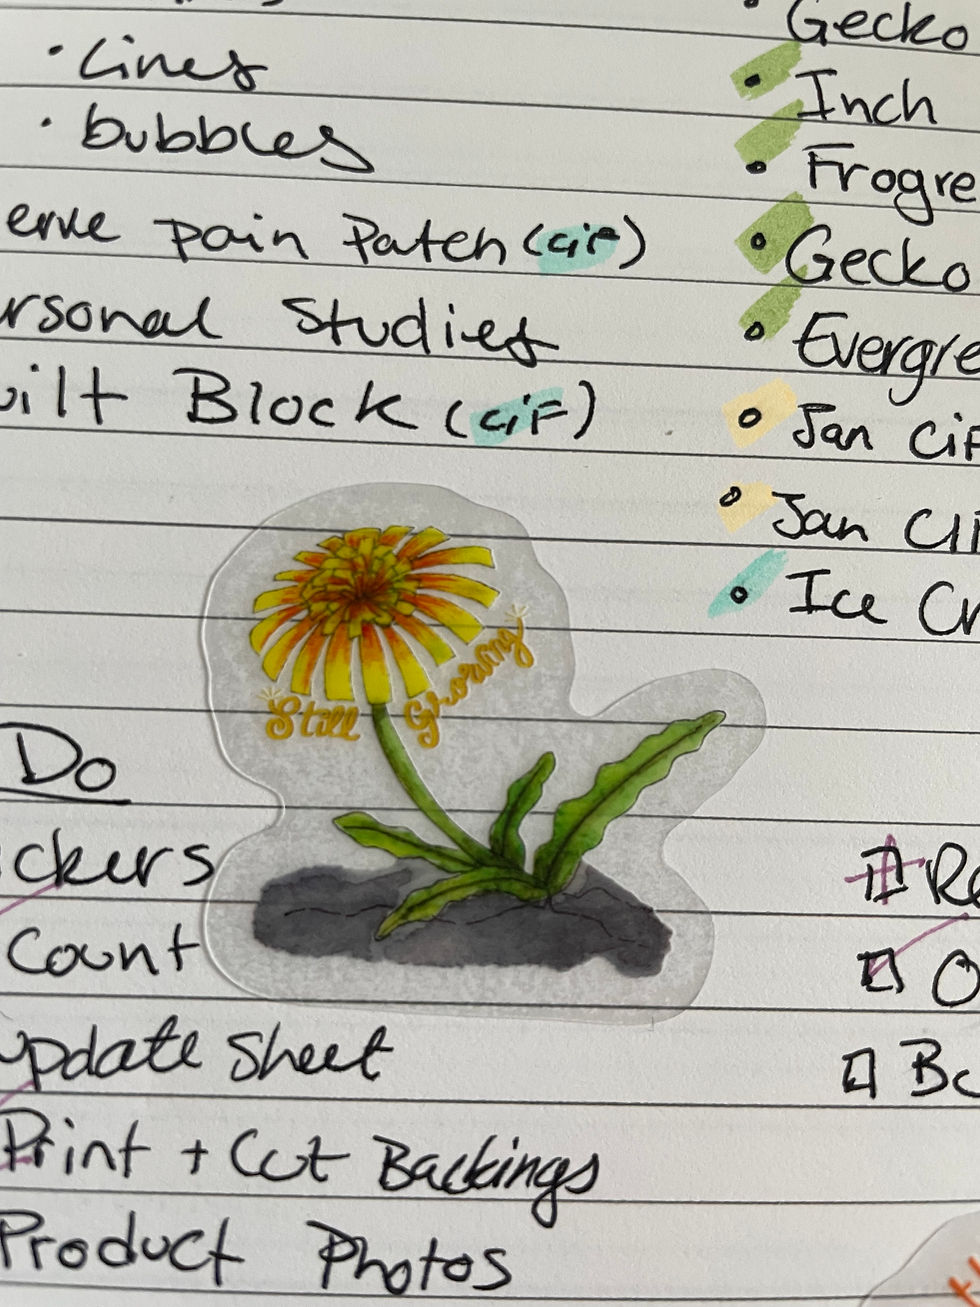 • Lines
• bubbles
erve pain Patch (CiF)
rsonal Studies
uilt Block (CiF)
• Gecko
• Inch
• Frogre
• Gecko
• Evergre
• Jan CiF
• Jan Cli
• Ice Cr
Still Growing
Do
ckers
Count
update Sheet
Print + Cut Backings
Product Photos
Re
O
Bo